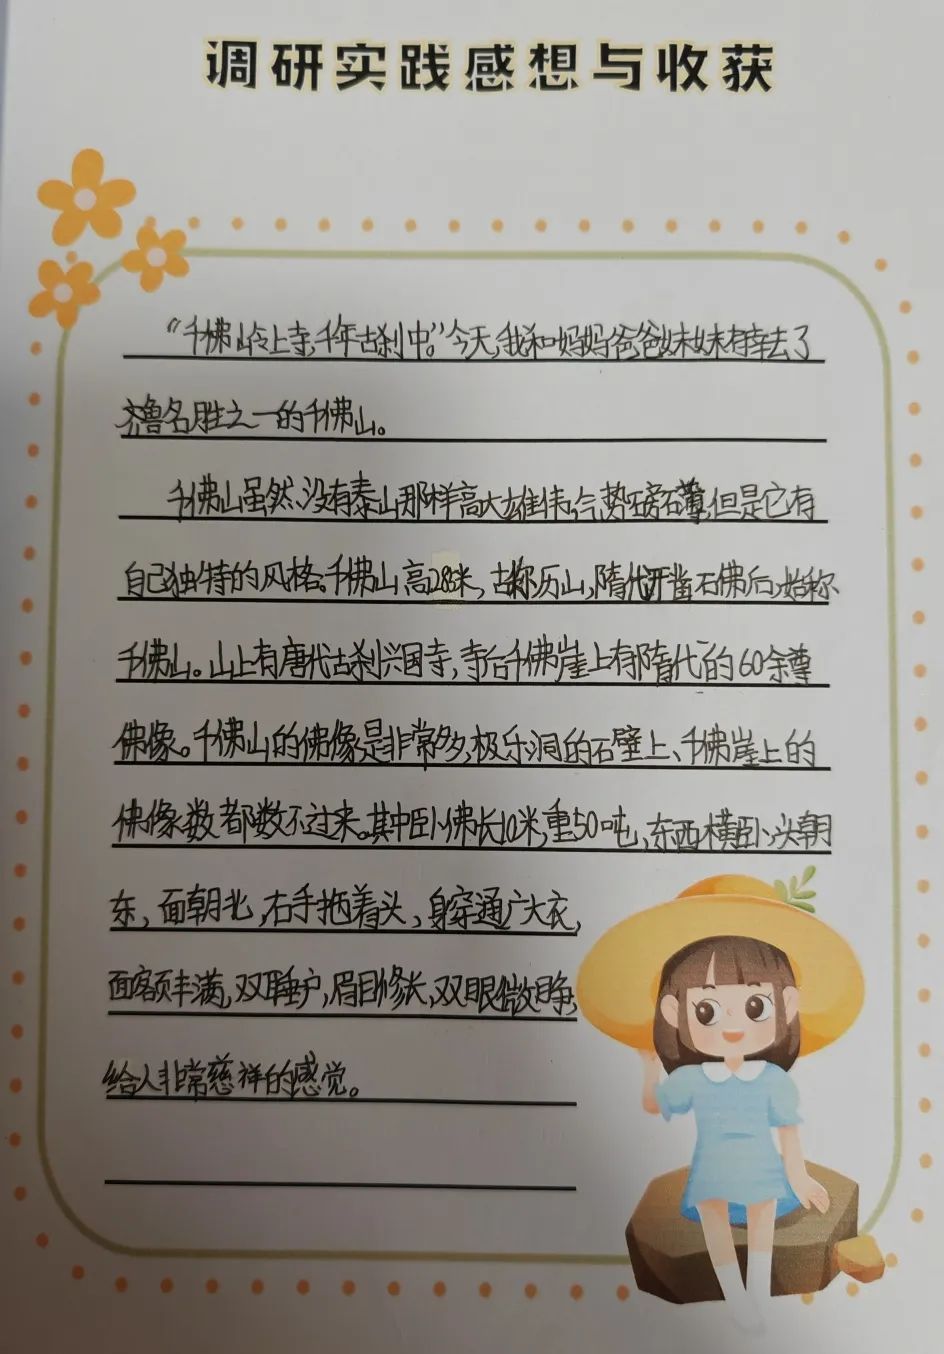 调研实践感想与收获
“千佛山岭上寺,千年古刹中。”今天,我和妈妈爸爸妹妹有幸去了
齐鲁名胜之一的千佛山。
千佛山虽然没有泰山那样高大雄伟,气势磅礴,但是它有
自己独特的风格。千佛山高285米,古称历山,隋代开凿石佛后,始称
千佛山。山上有唐代古刹兴国寺,寺后千佛崖上有隋代的60余尊
佛像。千佛山的佛像是非常多,极乐洞的石壁上、千佛崖上的
佛像数都数不过来。其中卧佛长10米,重50吨,东西横卧,头朝
东,面朝北,右手拖着头,身穿通广大衣,
面容丰满,双耳垂护,眉目修长,双眼微睁,
给人非常慈祥的感觉。